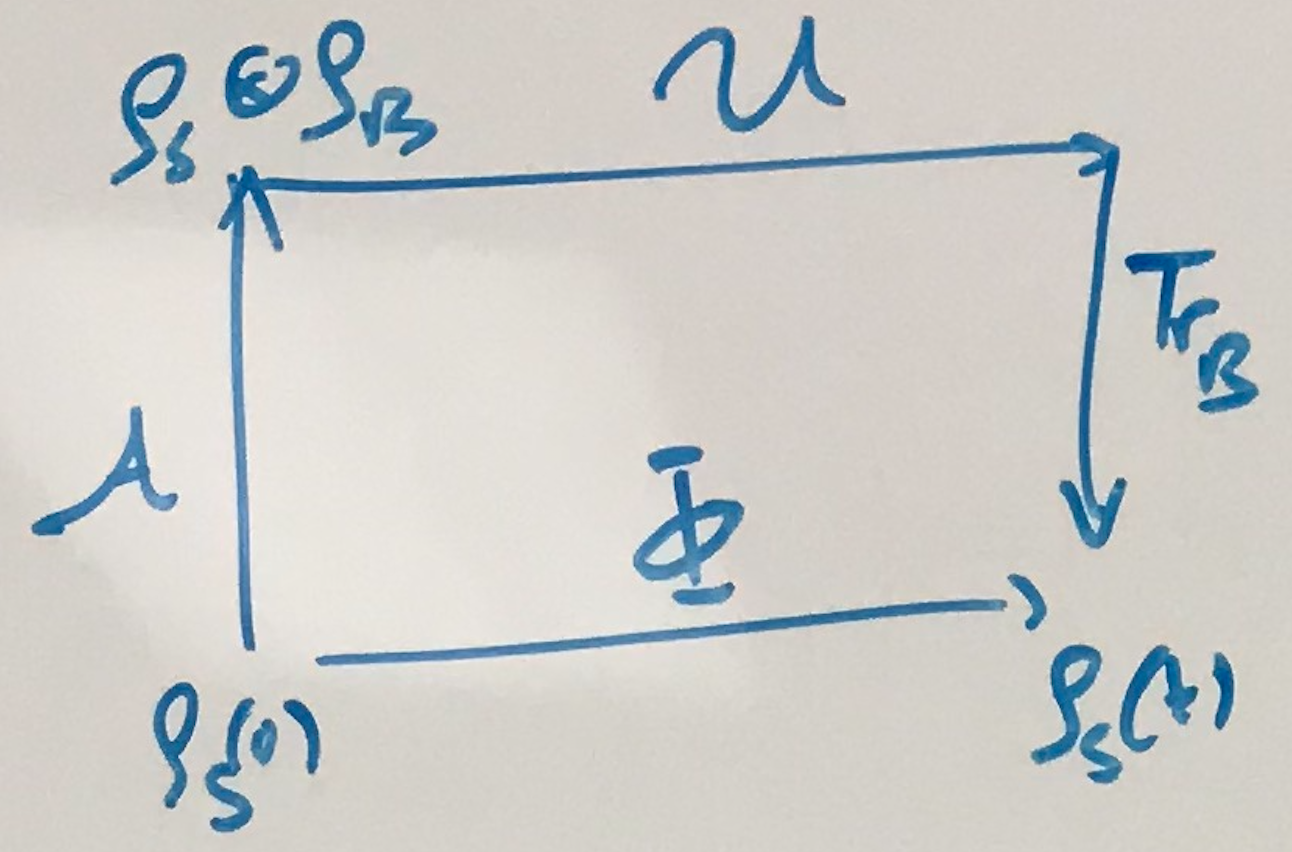 ρ_S ⊗ ρ_B
𝒰
Tr_B
𝒜
Φ
ρ_S(0)
ρ_S(t)